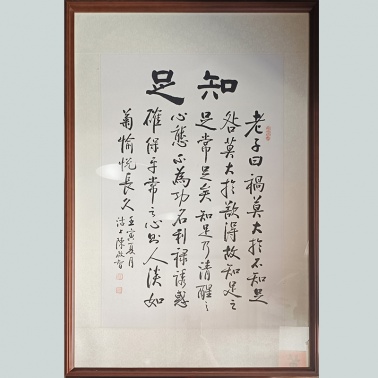 知足
老子曰禍莫大於不知足
咎莫大於欲得故知足之
足常足矣知足乃清醒之
心態不為功名利祿誘惑
確保平常之心出人淡如
菊愉悅長久壬寅夏月
沽上陳啟智